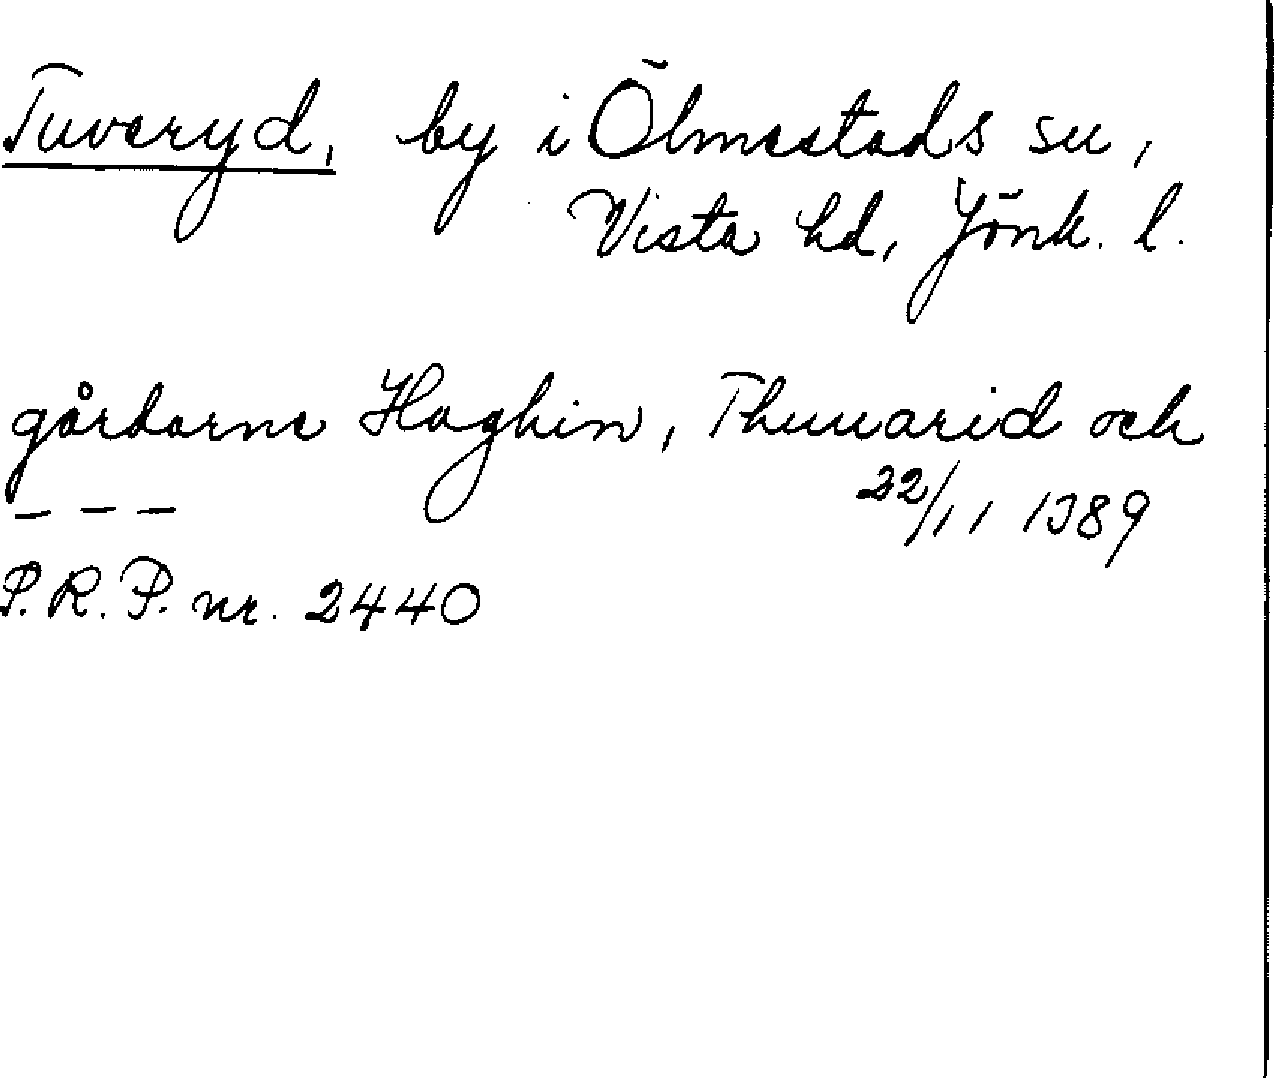 Tuveryd, by i Ölmestads sn,
Vista hd, Jönk. l.
gårdarne Haghin, Thuuarid och
– – – 22/11 1389
P.R.P. nr. 2440